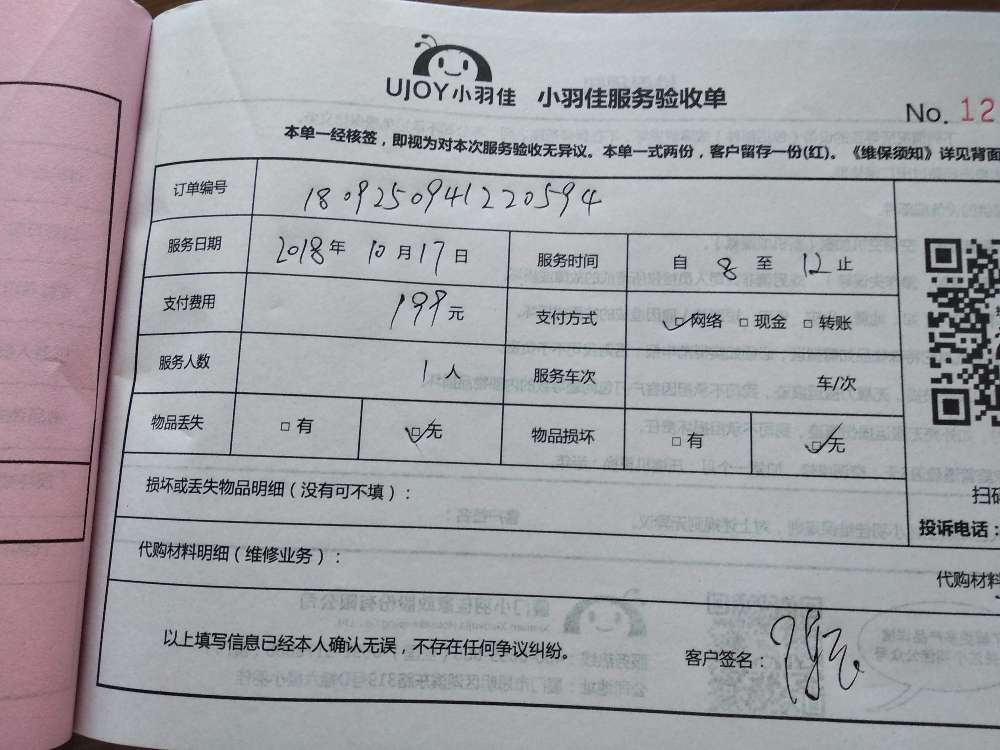 UJOY小羽佳 小羽佳服务验收单
No. 12
本单一经核签，即视为对本次服务验收无异议。本单一式两份，客户留存一份(红)。《维保须知》详见背面
订单编号 1809250941220594
服务日期 2018年 10月17日 服务时间 自 8 至 12止
支付费用 199元 支付方式 网络 现金 转账
服务人数 1人 服务车次 车/次
物品丢失 有 无 物品损坏 有 无
损坏或丢失物品明细（没有可不填）：
扫码
投诉电话：
代购材料明细（维修业务）：
代购材料
以上填写信息已经本人确认无误，不存在任何争议纠纷。 客户签名：